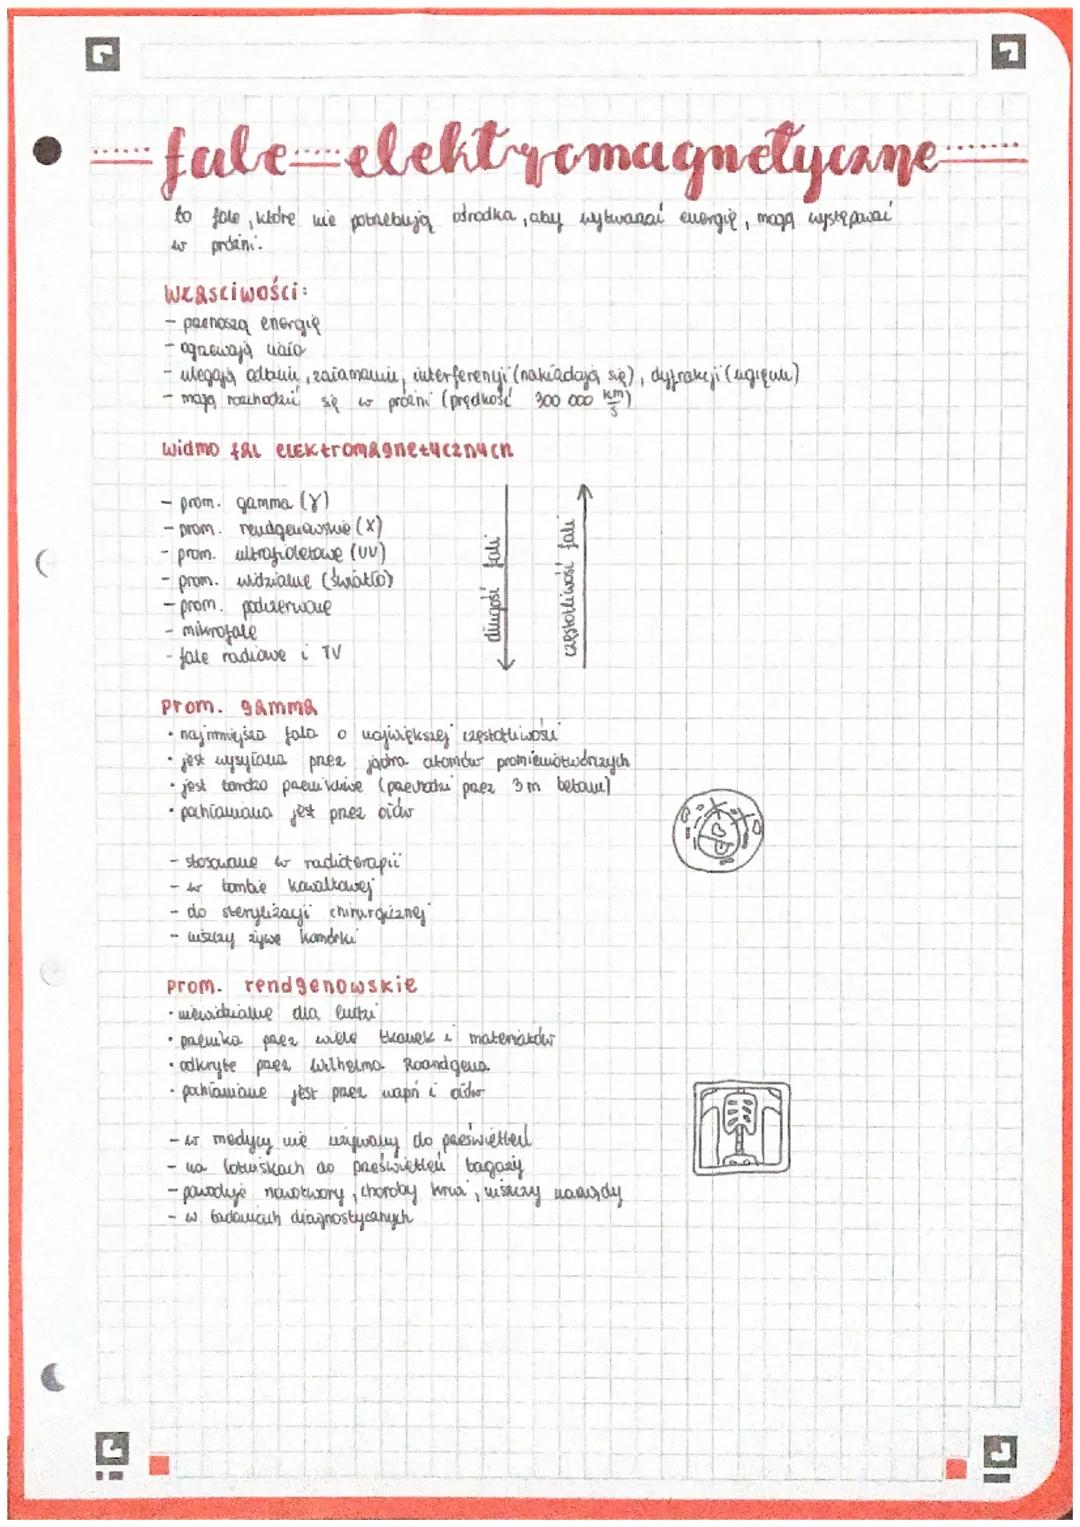 fale elektromagnetyczne
to fale, które nie potrzebują ośrodka, aby wytwarzać energię, mogą występować
w próżni.
właściwości:
- przenoszą energię
- ogrzewają ciała
- ulegają odbiciu, załamaniu, interferencji (nakładają się), dyfrakcji (ugięciu)
- mogą rozchodzić się w próżni (prędkość 300 000 km/s)
widmo fal elektromagnetycznych
- prom. gamma (γ)
- prom. rendgenowskie (X)
- prom. ultrafioletowe (UV)
- prom. widzialne (światło)
- prom. podczerwone
- mikrofale
- fale radiowe i TV
długość fali
częstotliwość fali
prom. gamma
• najmniejsza fala o największej częstotliwości
• jest wysyłana przez jądra atomów promieniotwórczych
• jest bardzo przenikliwe (przechodzi przez 3 m betonu)
• pochłaniana jest przez ołów
- stosowane w radioterapii
- w bombie kowaltowej
- do sterylizacji chirurgicznej
- niszczy żywe komórki
prom. rendgenowskie
• niewidzialne dla ludzi
• przenika przez wiele tkanek i materiałów
• odkryte przez Wilhelma Roandgena
• pochłaniane jest przez wapń i ołów
- w medycynie używany do prześwietleń
- na lotniskach do prześwietleń bagaży
- powoduje nowotwory, choroby krwi, niszczy narządy
- w badaniach diagnostycznych